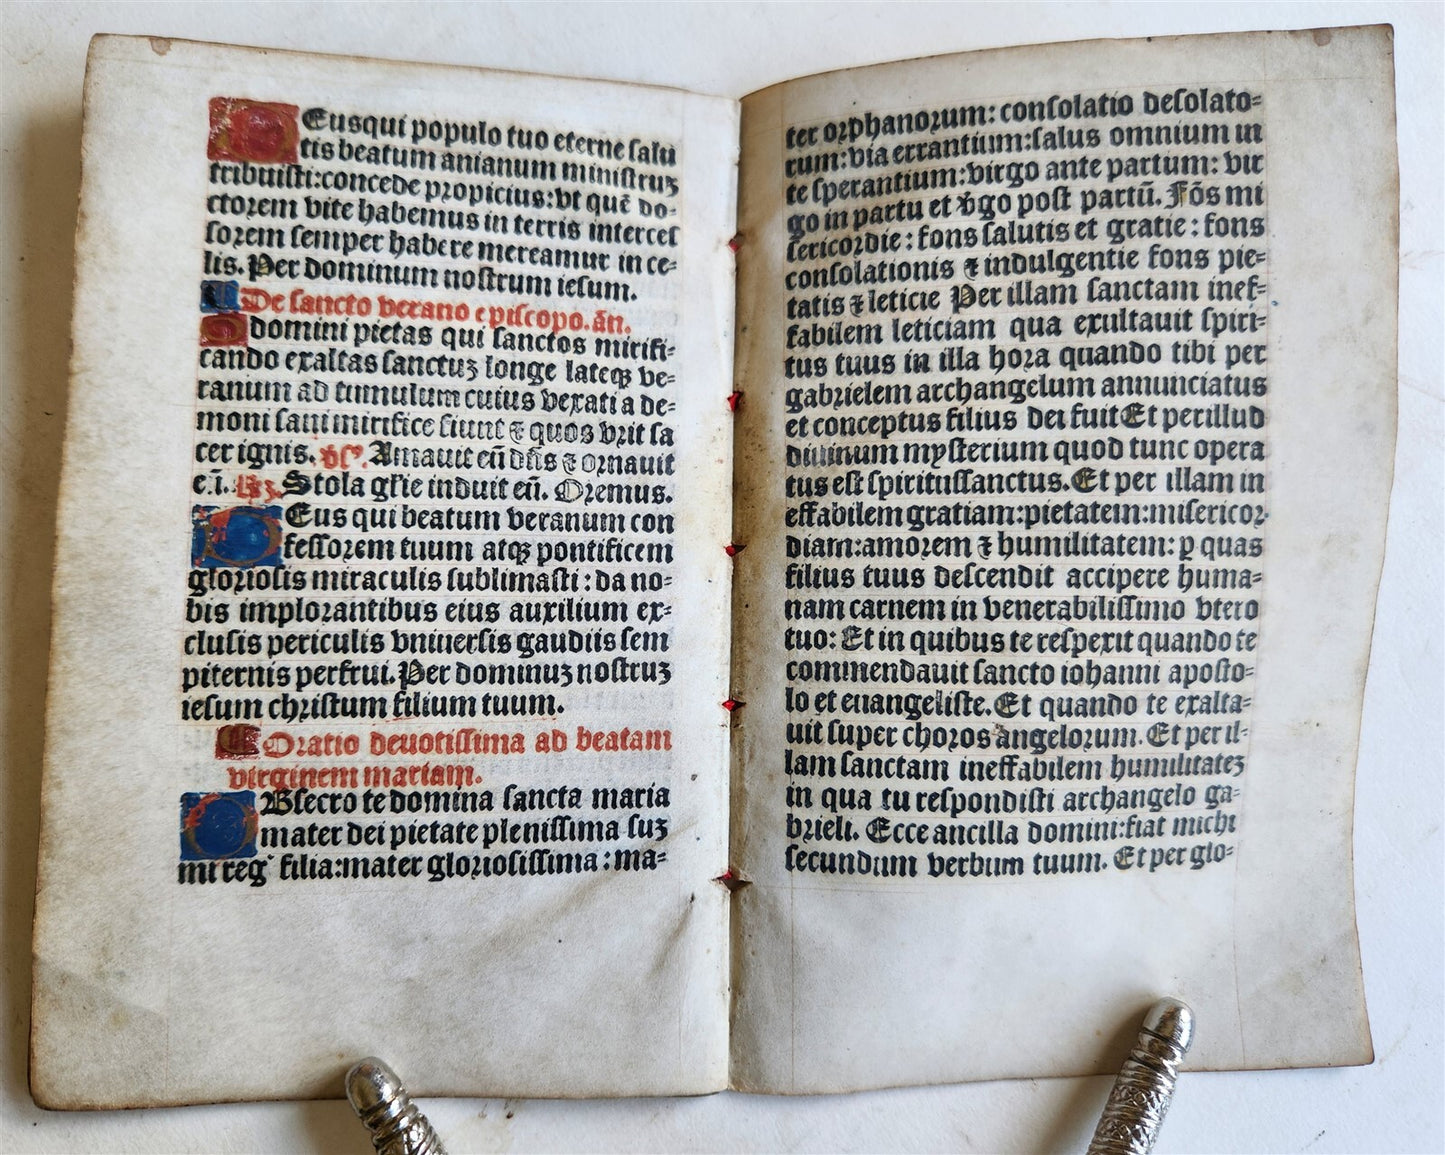 DEusqui populo tuo eterne salu
tis beatum anianum ministruꝫ
tribuisti:concede propicius:vt quē do-
ctorem vite habemus in terris interces
sorem semper habere mereamur in ce-
lis. Per dominum nostrum iesum.
De sancto verano episcopo. añ.
O domini pietas qui sanctos mirifi-
cando exaltas sanctuꝫ longe lateqꝫ ve-
ranum ad tumulum cuius vexati a de-
moni sani mirifice fiunt ⁊ quos vrit sa
cer ignis. v̄s. Amauit eū dñs ⁊ ornauit
eū. Stola glīe induit eū. Oremus.
DEus qui beatum veranum con
fessorem tuum atqꝫ pontificem
gloriosis miraculis sublimasti : da no-
bis implorantibus eius auxilium ex-
clusis periculis vniuersis gaudiis sem
piternis perfrui. Per dominuꝫ nostruꝫ
iesum christum filium tuum.
Oratio deuotissima ad beatam
virginem mariam.
OBsecro te domina sancta maria
mater dei pietate plenissima suꝫ
mi regꝰ filia:mater gloriosissima : ma-
ter orphanorum: consolatio desolato-
rum:via errantium:salus omnium in
te sperantium:virgo ante partum: vir
go in partu et v̄go post partū. Fōs mi
sericordie : fons salutis et gratie : fons
consolationis ⁊ indulgentie fons pie-
tatis ⁊ leticie Per illam sanctam inef-
fabilem leticiam qua exultauit spiri-
tus tuus in illa hora quando tibi per
gabrielem archangelum annunciatus
et conceptus filius dei fuit Et per illud
diuinum mysterium quod tunc opera
tus est spiritussanctus. Et per illam in
effabilem gratiam:pietatem:misericor
diam:amorem ⁊ humilitatem: ꝑ quas
filius tuus descendit accipere huma-
nam carnem in venerabilissimo vtero
tuo: Et in quibus te respexit quando te
commendauit sancto iohanni aposto-
lo et euangeliste. Et quando te exalta-
uit super choros angelorum. Et per il-
lam sanctam ineffabilem humilitateꝫ
in qua tu respondisti archangelo ga-
brieli. Ecce ancilla domini:fiat michi
secundum verbum tuum. Et per glo-